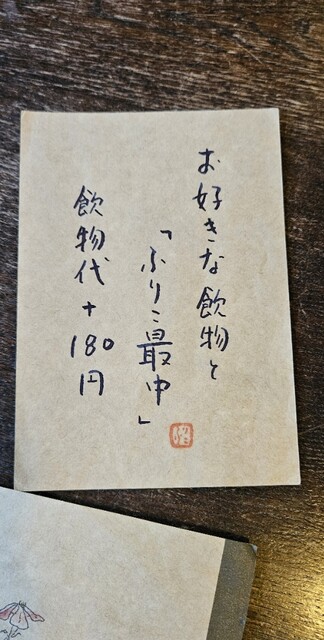 お好きな飲物と
「ふりこ最中」
飲物代+180円